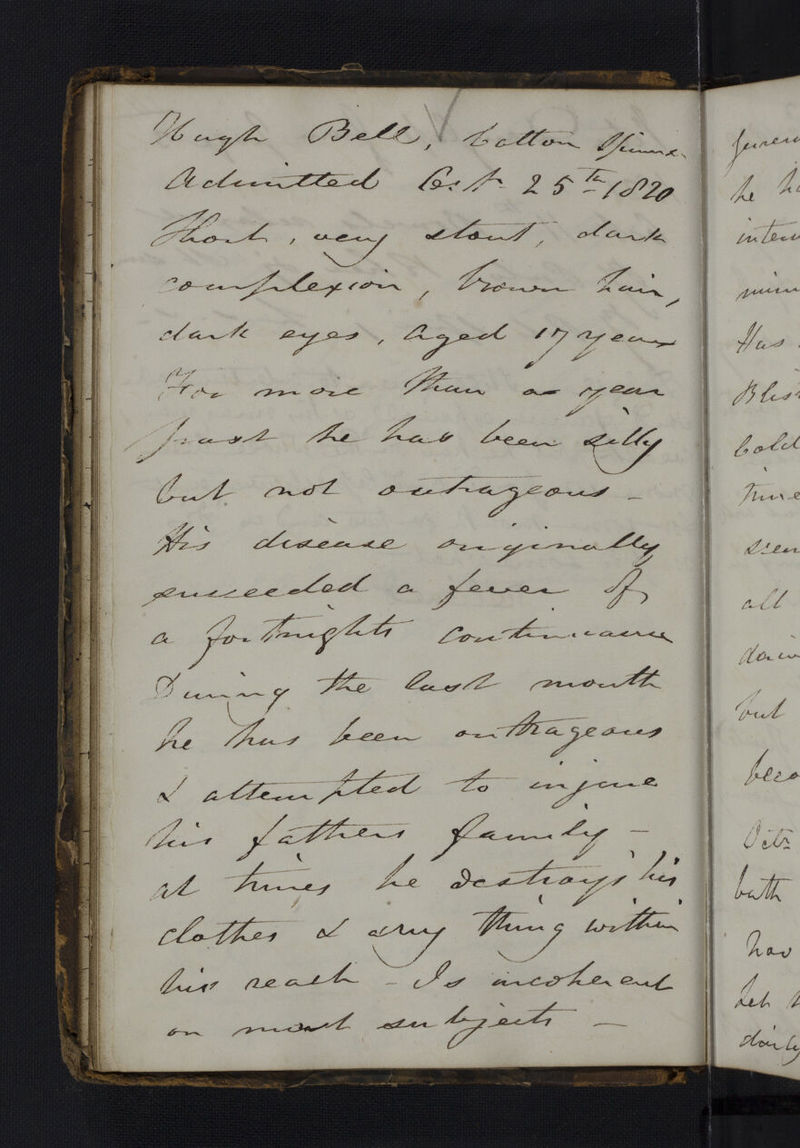 Hugh Bell, Cotton Spinner
Admitted Sept 25th 1820
Short, very stout, dark
complexion, brown hair,
dark eyes, aged 17 years
For more than a year
past he has been silly
but not outrageous -
His disease originally
succeeded a fever of
a fortnights continuance
During the last month
he has been outrageous
& attempted to injure
his fathers family -
at times he destroys his
clothes & any thing within
his reach - Is incoherent
on most subjects -
he h
Has
all
but
bath